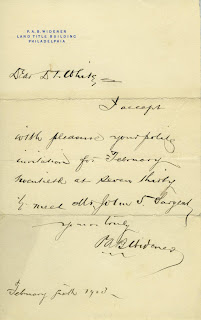 P.A.B. WIDENER
LAND TITLE BUILDING
PHILADELPHIA
Dear Dr. White,
I accept
with pleasure your polite
invitation for February
twentieth at seven thirty
to meet Mr. John S. Sargent,
yours truly
P.A.B. Widener
February sixth 1903